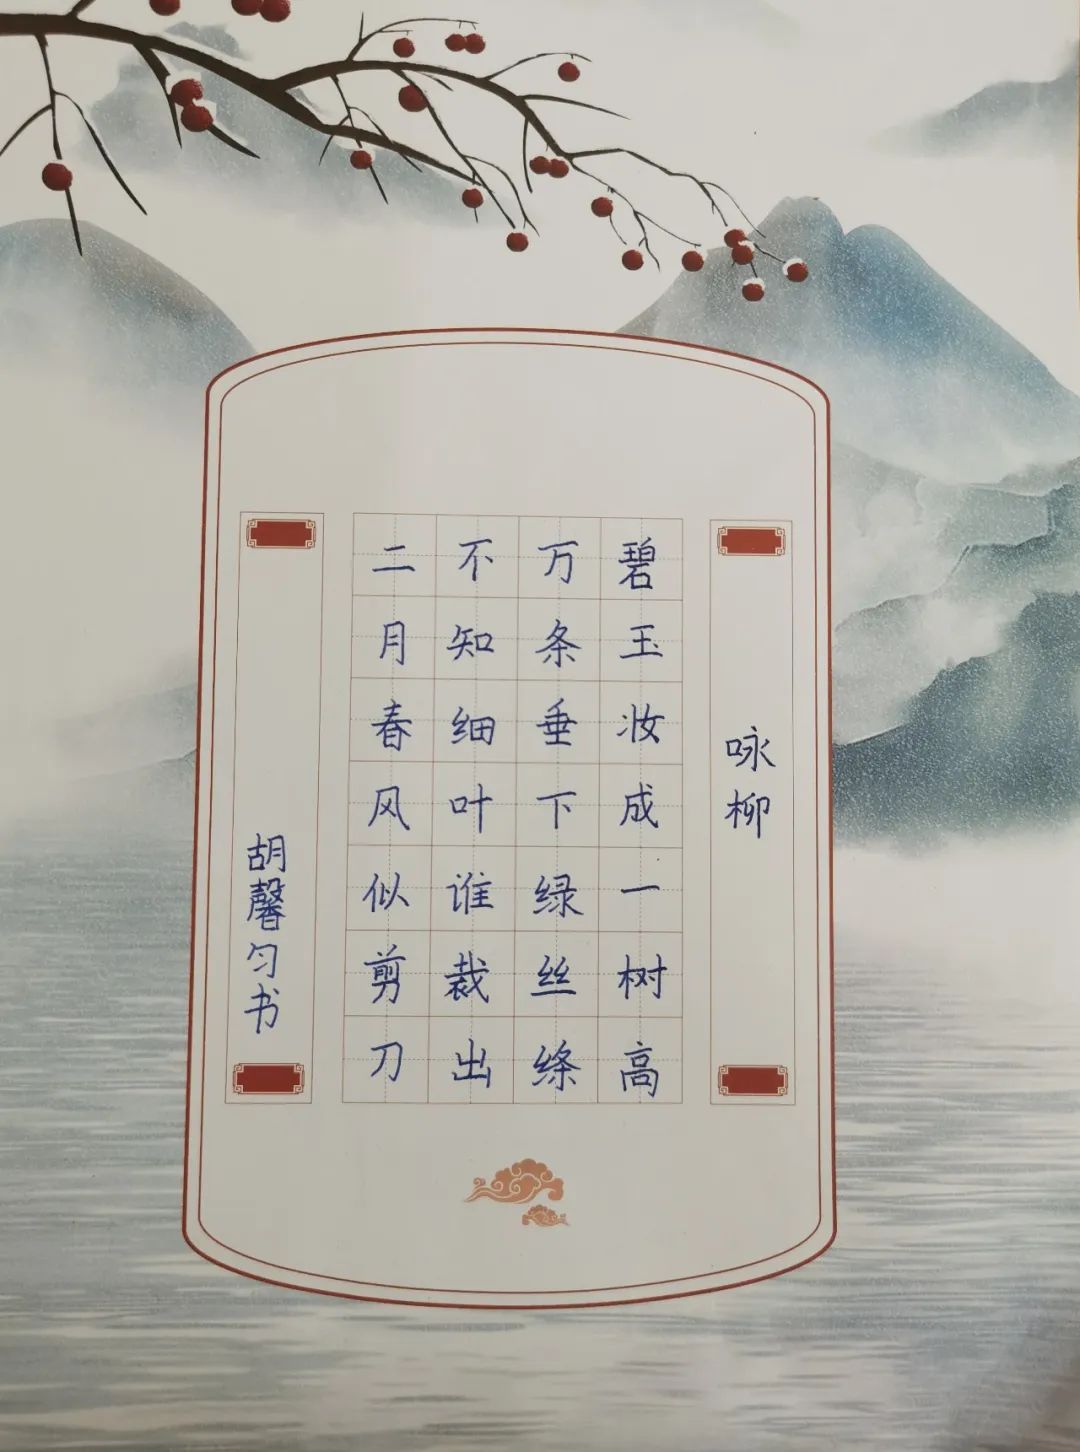 咏柳
碧玉妆成一树高
万条垂下绿丝绦
不知细叶谁裁出
二月春风似剪刀
胡馨匀书